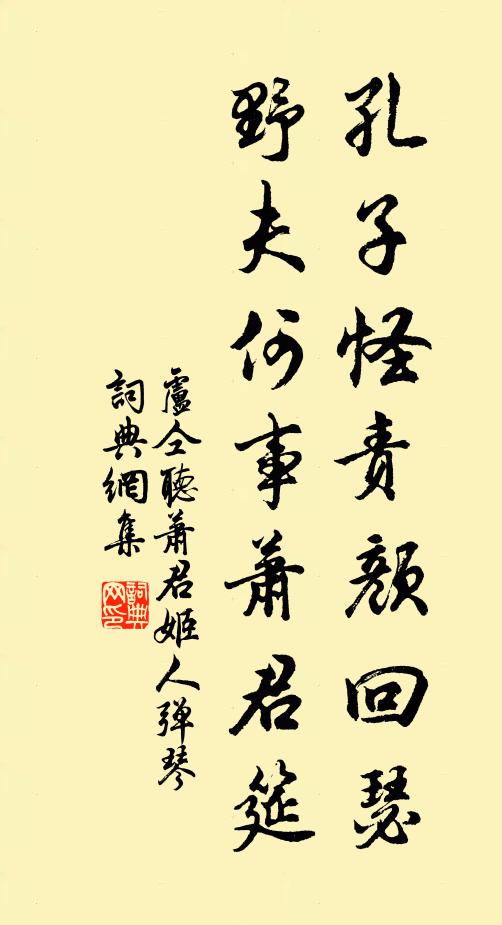 孔子怪責顏回瑟
野夫何事蕭君筵
盧仝聽蕭君姬人彈琴
詞典網集
詞典網印